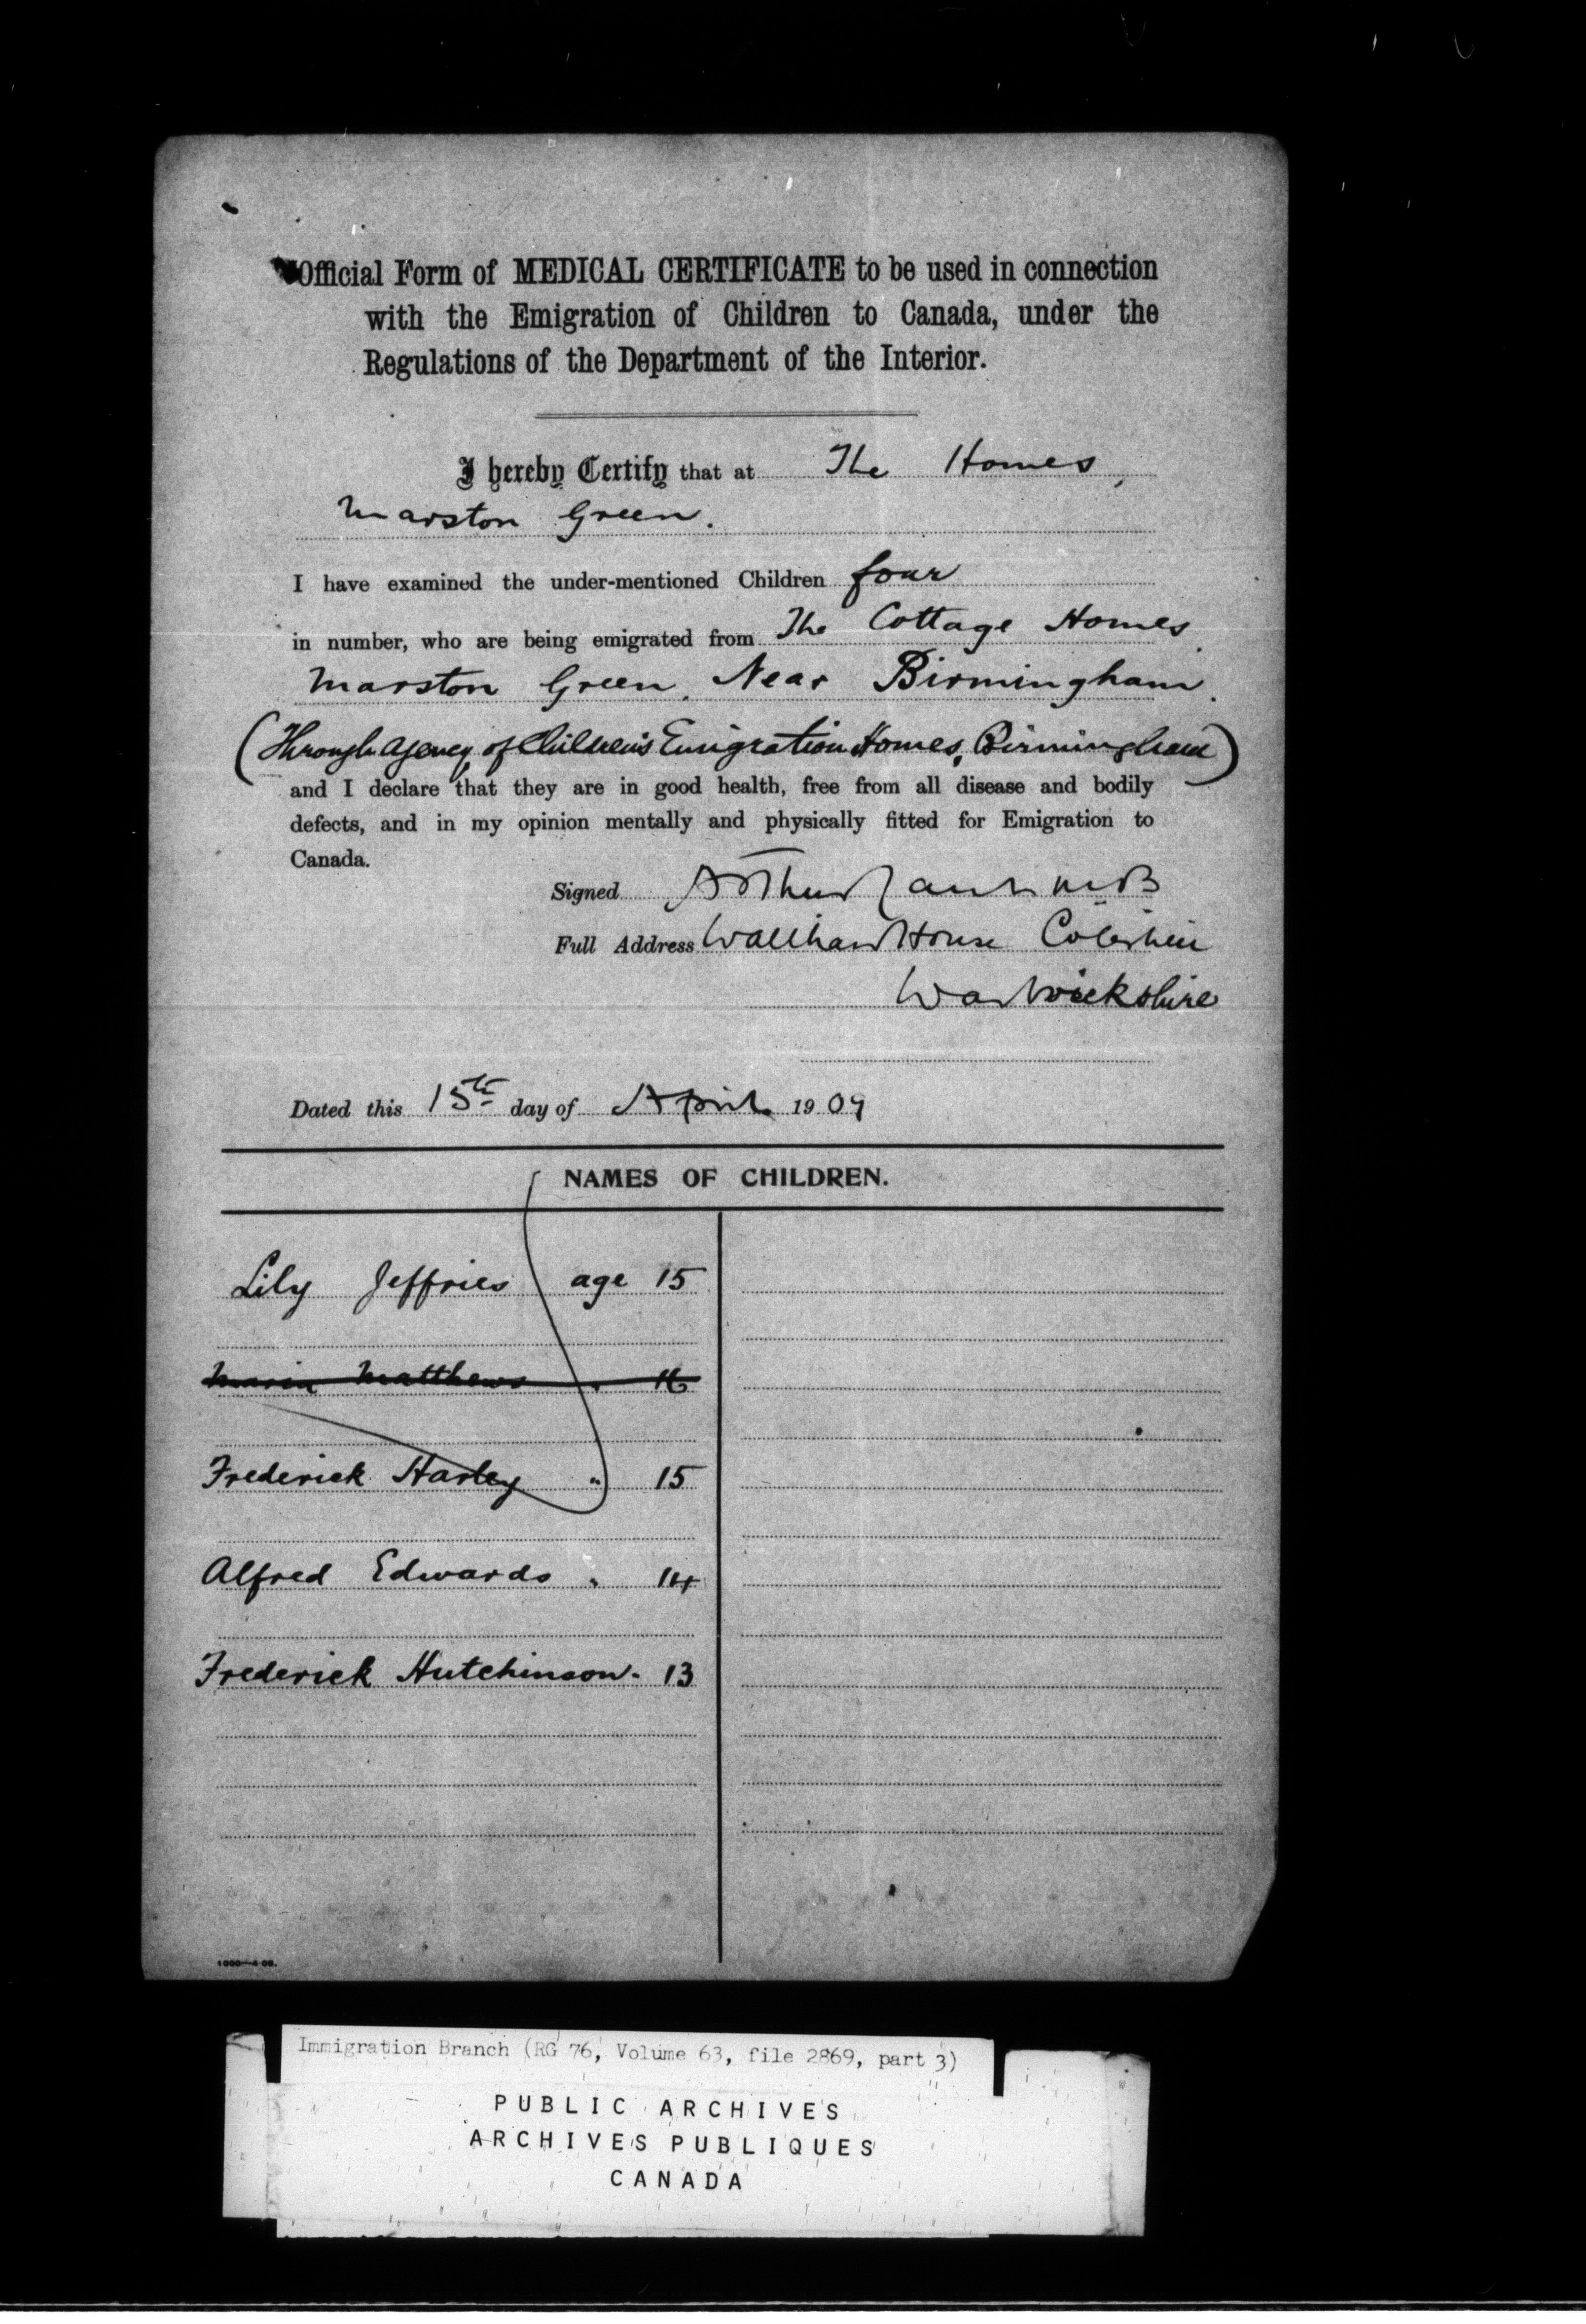 Official Form of MEDICAL CERTIFICATE to be used in connection
with the Emigration of Children to Canada, under the
Regulations of the Department of the Interior.
I hereby Certify that at The Homes,
Marston Green.
I have examined the under-mentioned Children four
in number, who are being emigrated from The Cottage Homes
Marston Green, Near Birmingham.
(Through Agency of Children's Emigration Homes, Birmingham)
and I declare that they are in good health, free from all disease and bodily
defects, and in my opinion mentally and physically fitted for Emigration to
Canada.
Signed Arthur MB
Full Address House Coleshill
Warwickshire
Dated this 15th day of April 1909
NAMES OF CHILDREN.
Lily Jeffries age 15
Maria Matthews " 16
Frederick Harley " 15
Alfred Edwards " 14
Frederick Hutchinson " 13
1000—4-08.
Immigration Branch (RG 76, Volume 63, file 2869, part 3)
PUBLIC ARCHIVES
ARCHIVES PUBLIQUES
CANADA